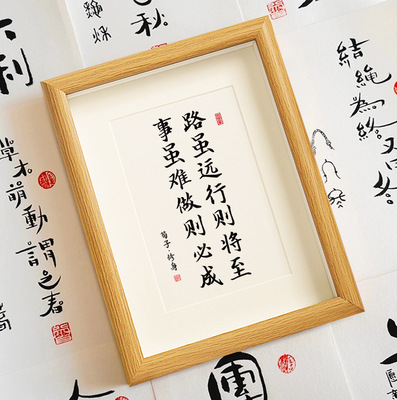 路虽远行则将至
事虽难做则必成
荀子·修身
利
秋
結繩為終
冬
草木萌動謂之春
團